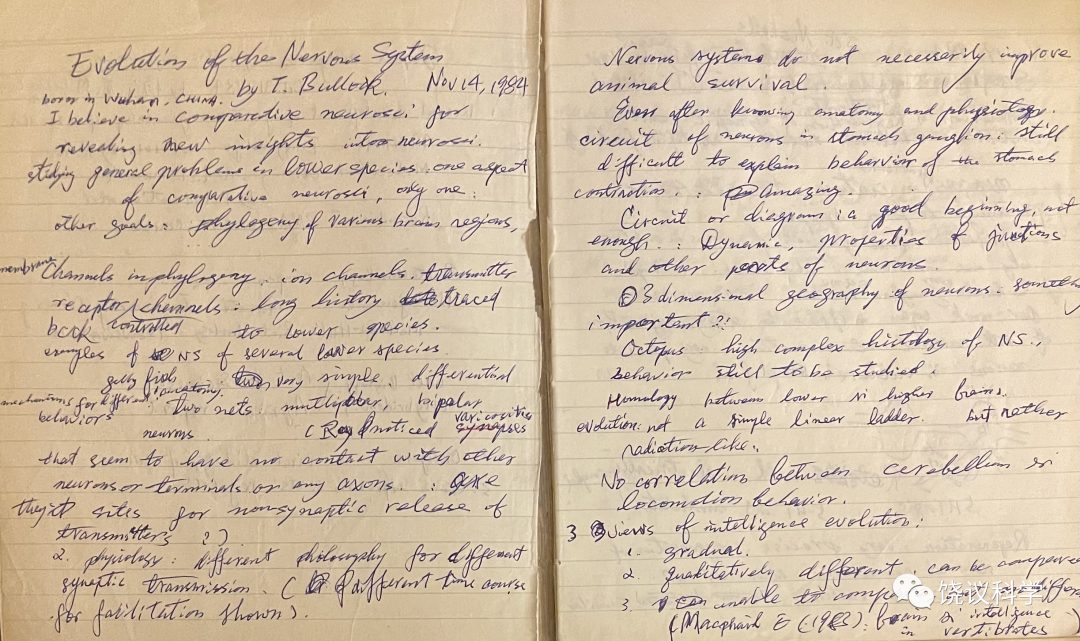 Evolution of the Nervous System
by T. Bullock. Nov 14, 1984
born in Wuhan, CHINA.
I believe in comparative neurosci for
revealing new insights into neurosci.
studying general problems in lower species: one aspect
of comparative neurosci, only one.
other goals: phylogeny of various brain regions,
membrane
Channels in phylogeny. ion channels. transmitter
receptor/channels: long history traced
back controlled to lower species.
examples of NS of several lower species.
jelly fish very simple. differential
mechanisms for different behaviors
anatomy: two nets: multipolar, bipolar
neurons. (Rao noticed varicosities synapses
that seem to have no contact with other
neurons or terminals or any axons. Are
they sites for nonsynaptic release of
transmitters?)
2. physiology: different philosophy for different
synaptic transmission. (different time course
for facilitation shown).
Nervous systems do not necessarily improve
animal survival.
Even after knowing anatomy and physiology.
circuit of neurons in stomach ganglion: still
difficult to explain behavior of the stomach
contraction. Amazing.
Circuit or diagram is a good beginning, not
enough. Dynamic, properties of junctions
and other parts of neurons.
3 dimensional geography of neurons.
important?!
Octopus high complex histology of NS.,
behavior still to be studied.
Homology between lower & higher brains.
evolution: not a simple linear ladder. but rather
radiation-like.
No correlation between cerebellum &
locomotion behavior.
3 views of intelligence evolution:
1. gradual.
2. qualitatively different, can be compared
3. unable to
(Macphail E (1983): brain & intelligence
in vertibrates)
饶议科学